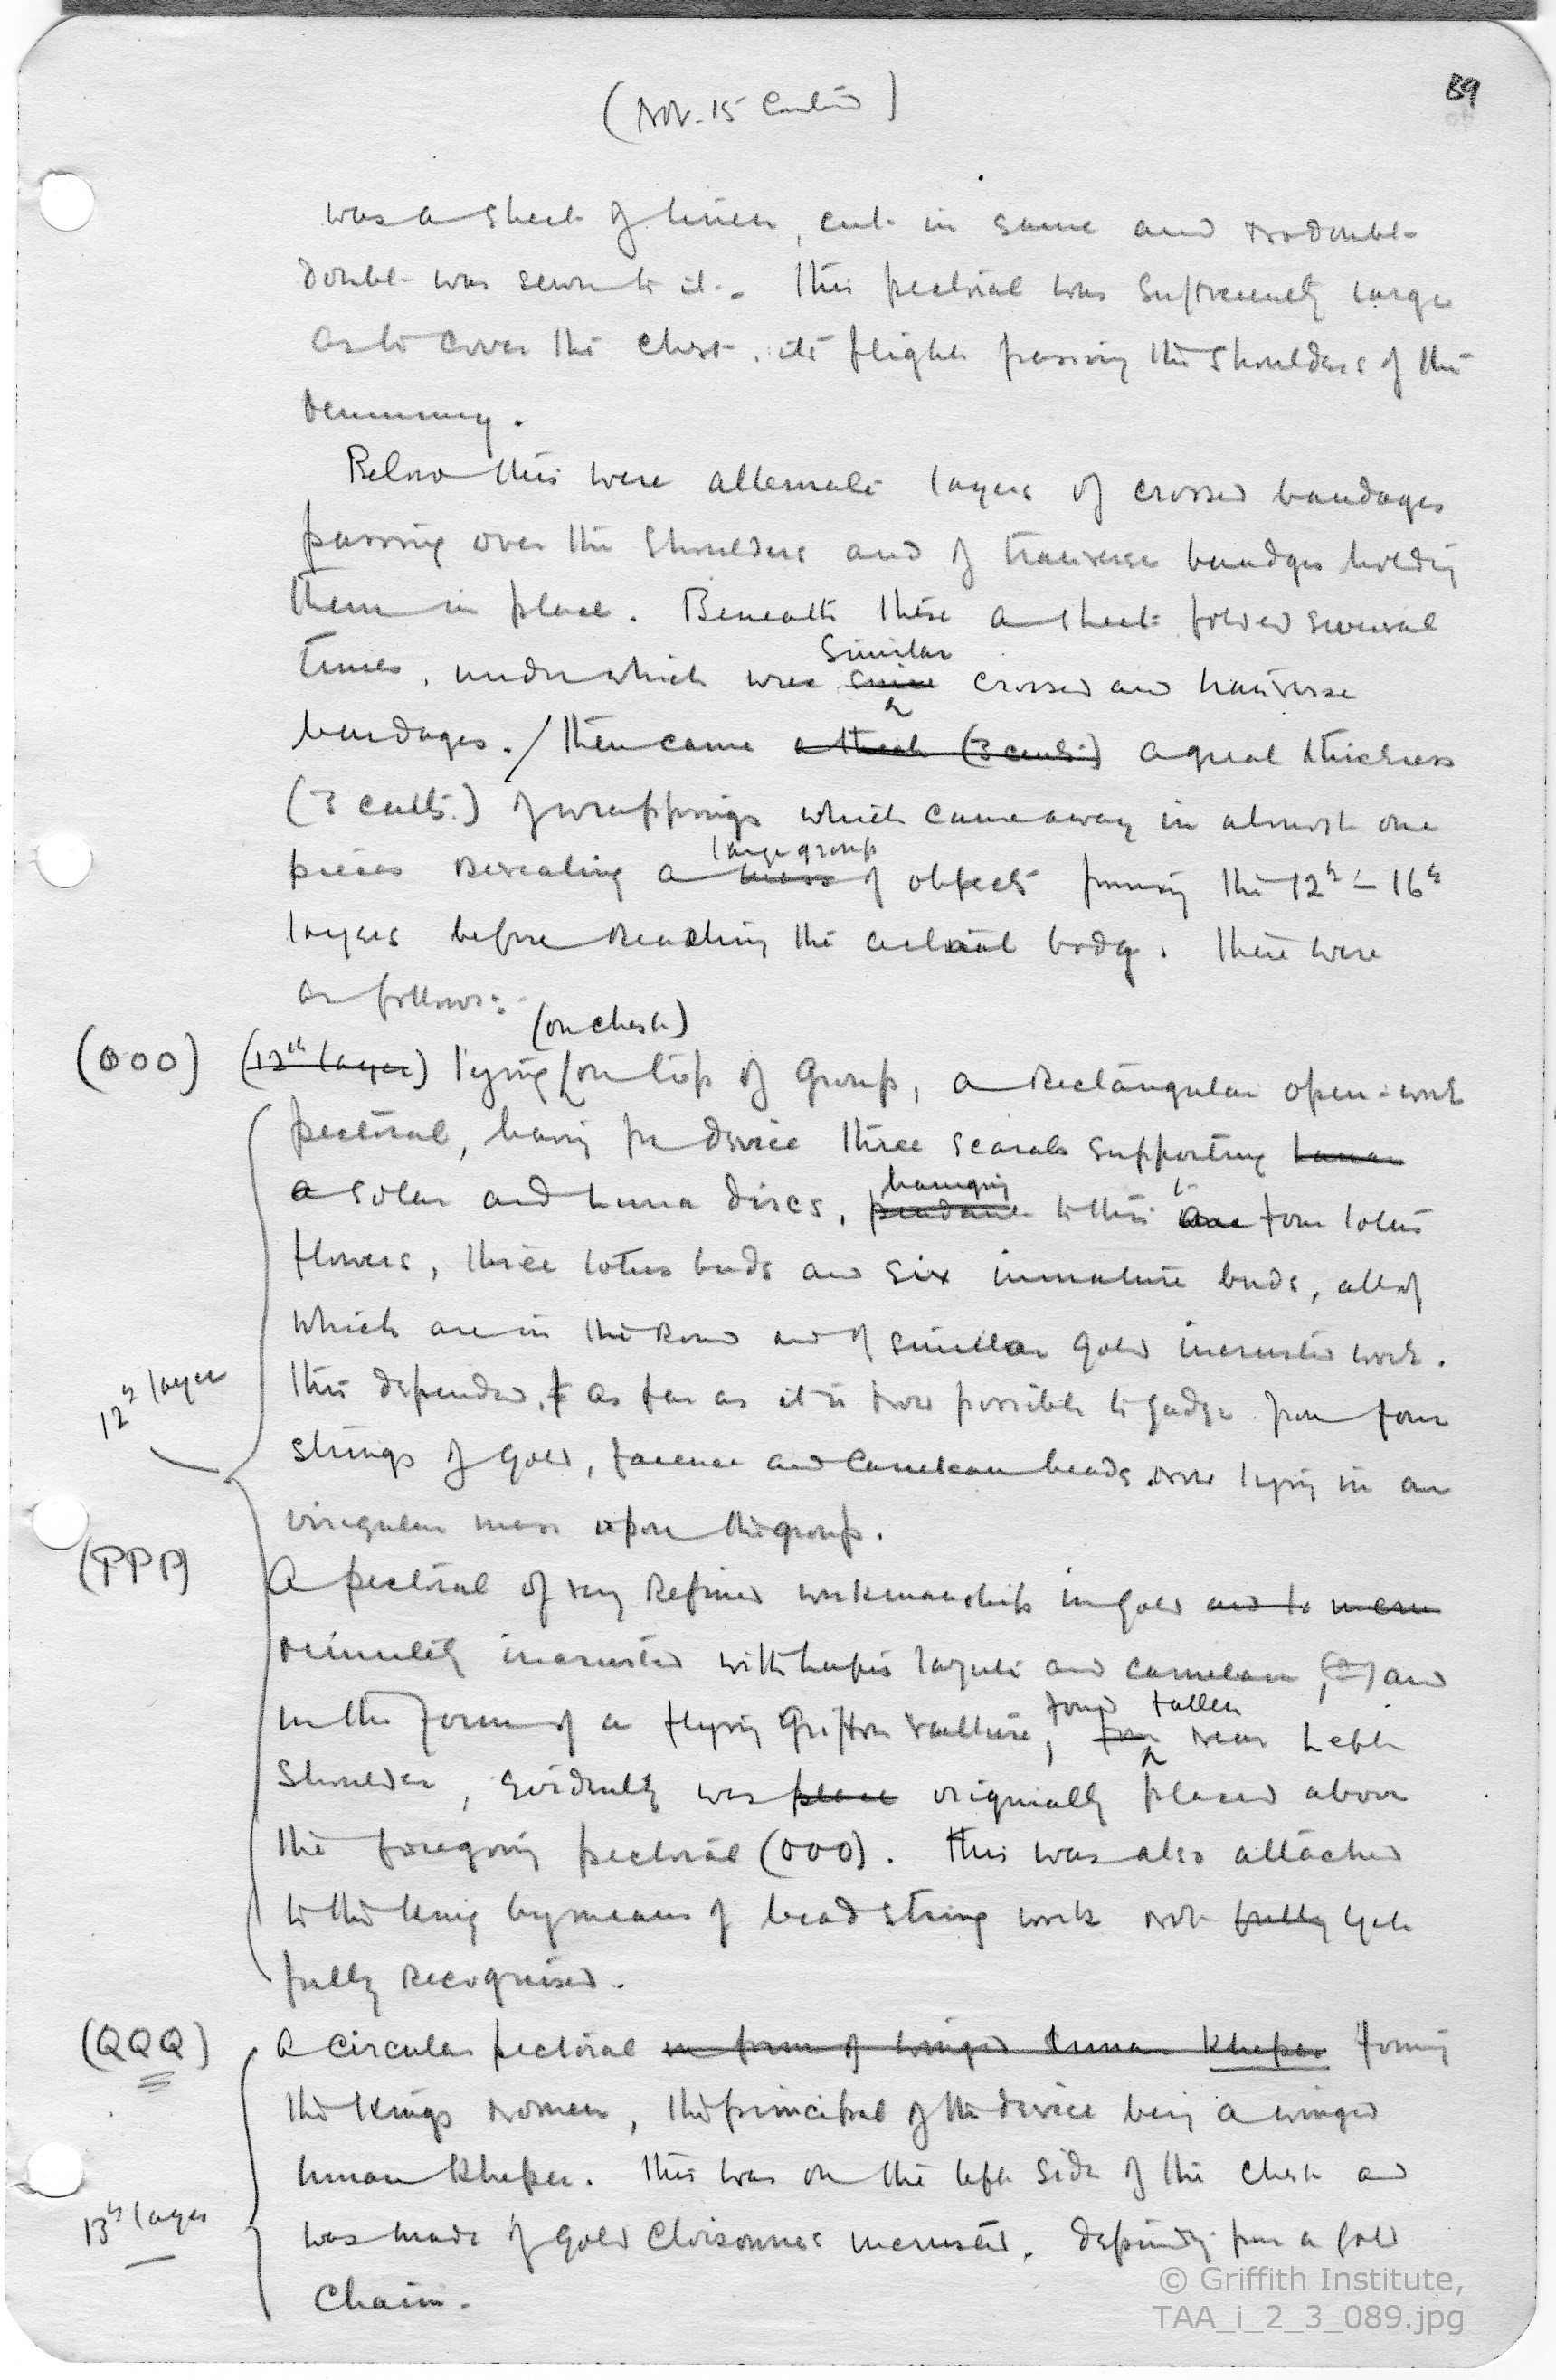 89
(Nov. 15 Contin'd)
was a sheet of linen, cut in same and no doubt
doubt was sewn to it. This pectoral was sufficiently large
as to cover the chest, its flight passing the shoulders of the
mummy.
Below this were alternate layers of crossed bandages
passing over the shoulders and of tranverse bandges holding
them in place. Beneath these a sheet folded several
similar
times, under which were crossed and tranverse
bandages. / Then came a thick (3 cents.) a great thickness
(3 cents.) of wrappings which came away in almost one
large group
pieces revealing a mass of objects forming the 12th – 16th
layers before reaching the actual body. These were
as follows:-
(on chest)
(OOO) (12th layer) lying on top of group, a rectangular open-work
pectoral, having for device three scarabs supporting
a solar and Luna discs,
hanging
pendant to this are four lotus
flowers, three lotus buds and six immature buds, all of
which are in the round and of similar gold incrusted work.
12th layer
This depended, as far as it is now possible to judge from four
strings of gold, faience and carnelean beads now lying in an
irregular mass upon the group.
(PPP) A pectoral of very refined workmanship in gold and
minutely incrusted with lapis lazuli and carnelean, and
found fallen
in the form of a flying Griffon Vulture, near left
shoulder, evidently was place originally placed above
the foregoing pectoral (OOO). This was also attached
to the King by means of bead string work not fully yet
fully recognised.
(QQQ) A circular pectoral in form of winged lunar Kheper forming
the Kings nomen, the principal of the device being a winged
lunar Kheper. This was on the left side of the chest and
13th layer
was made of gold Cloisonnes incrusted. Depending from a gold
chain.
© Griffith Institute,
TAA_i_2_3_089.jpg